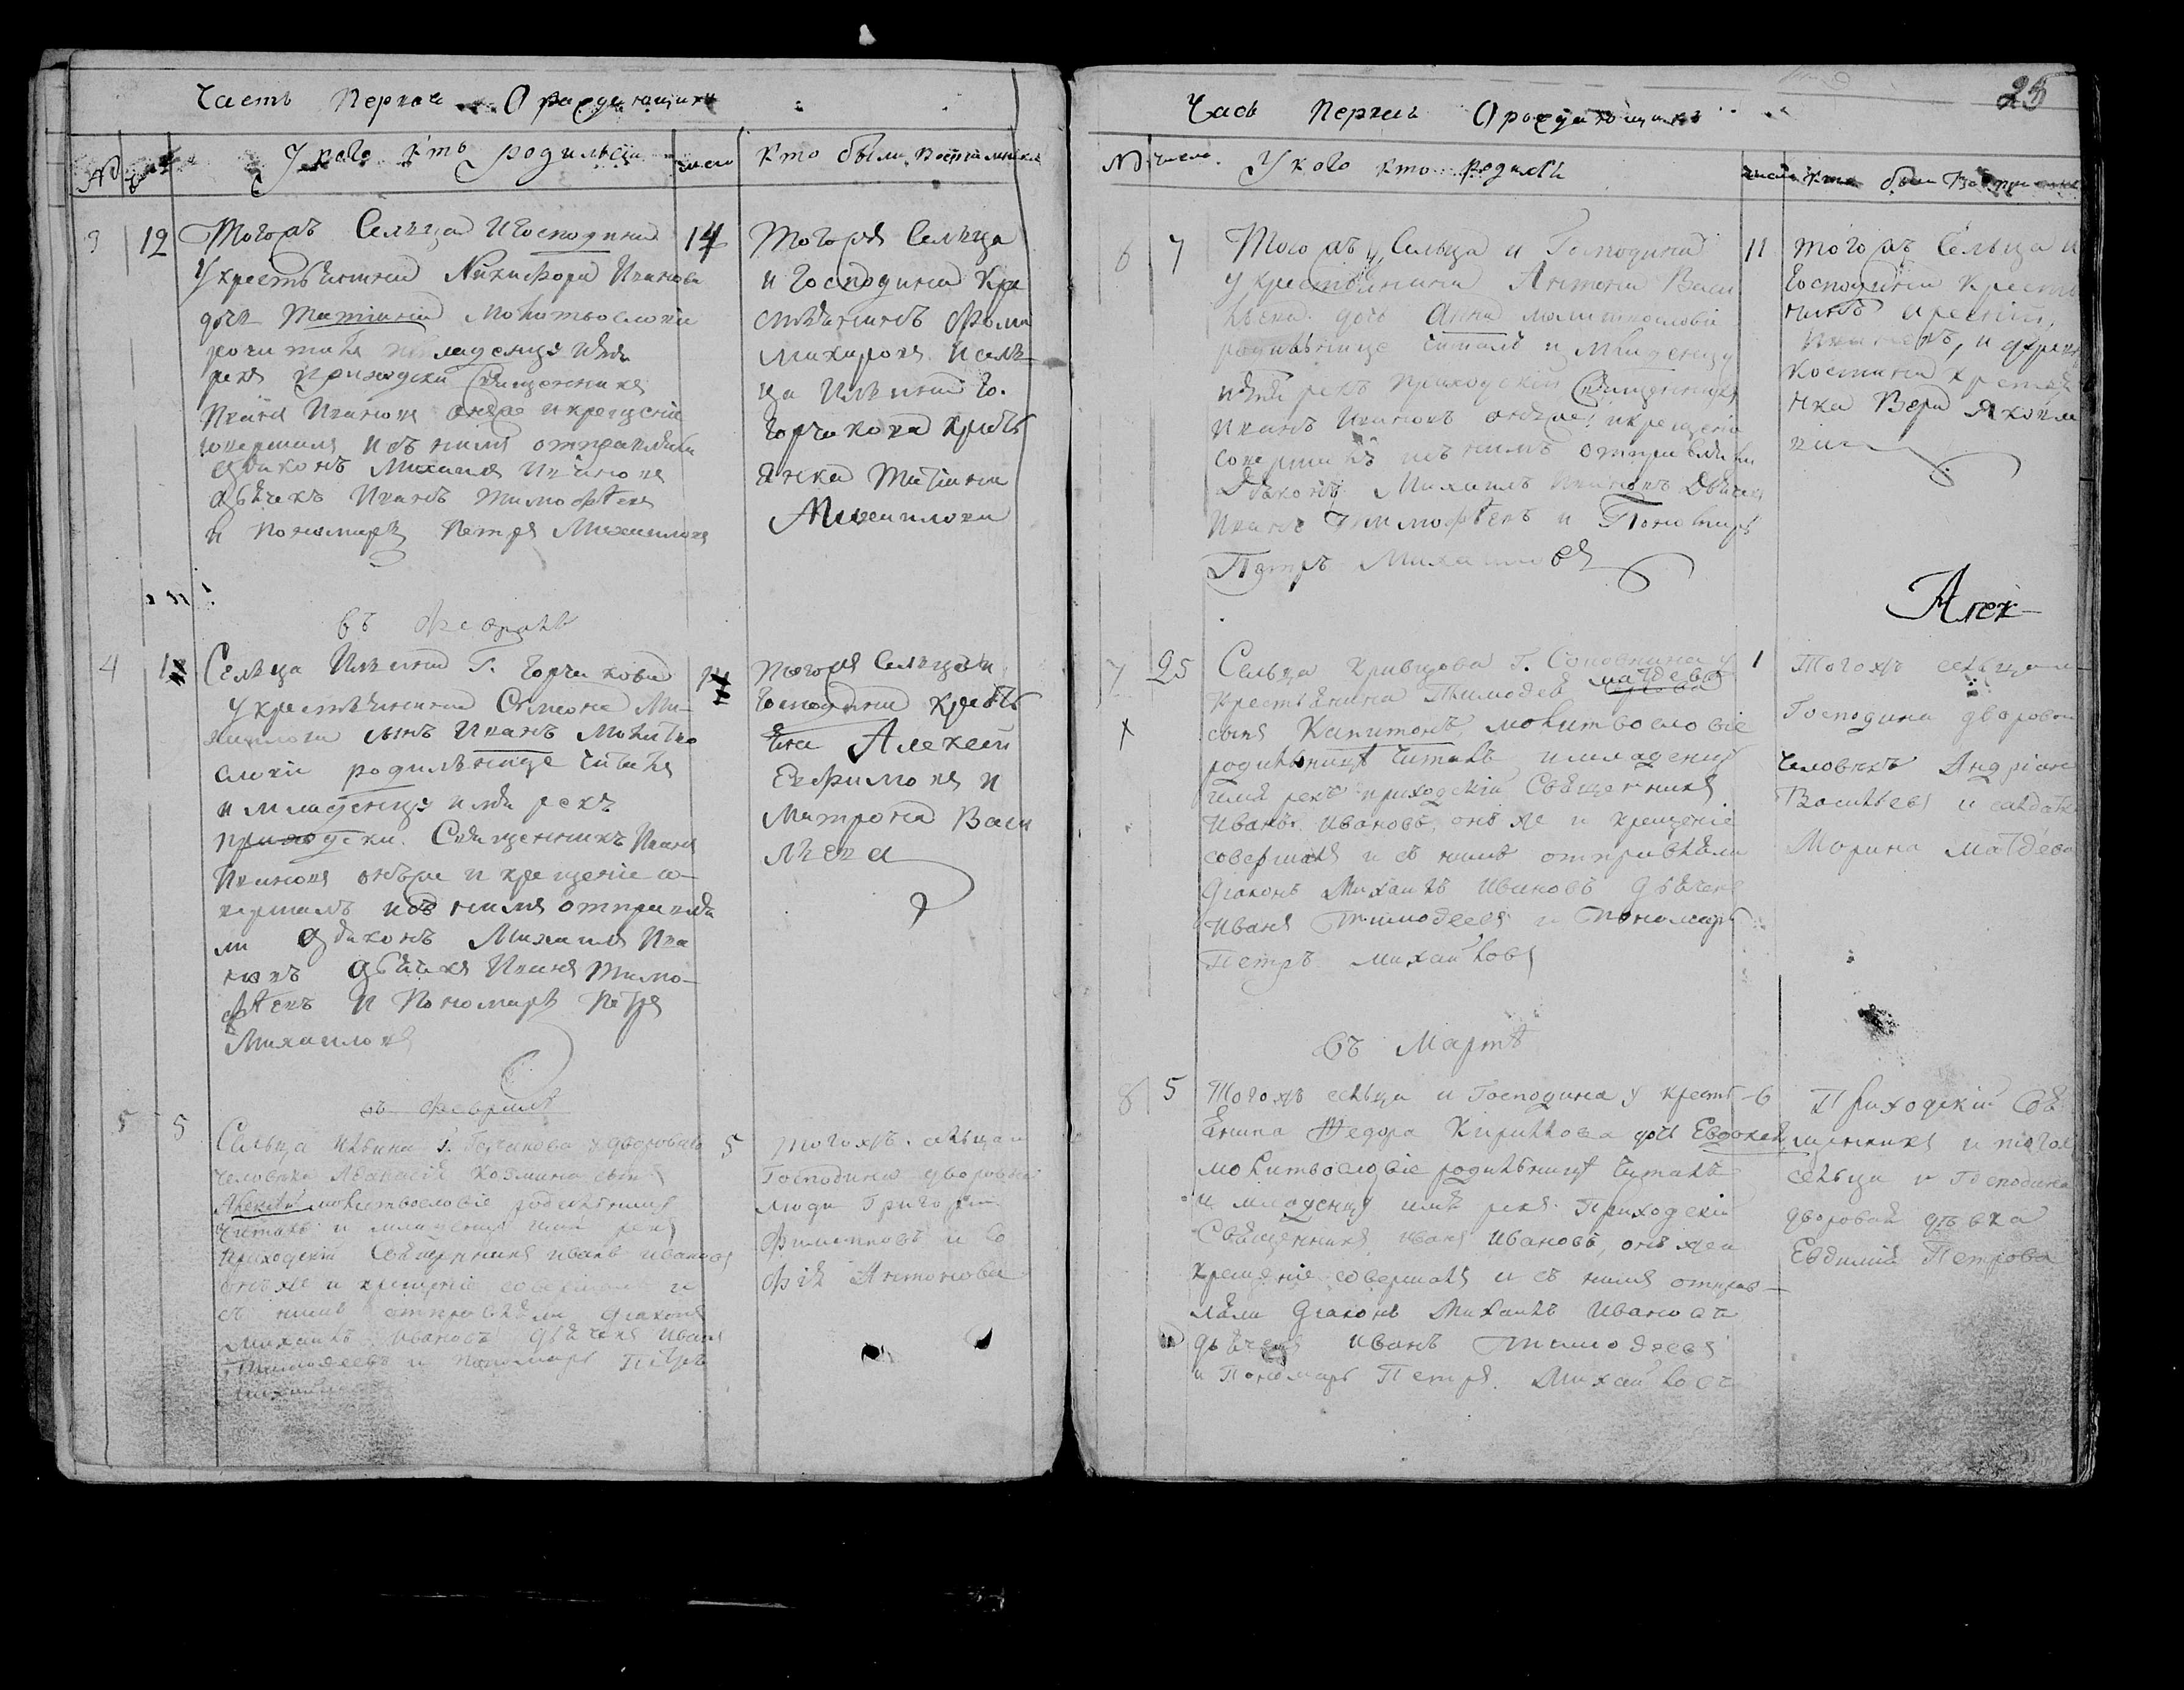 Часть Первая О раждающихся
№ У кого кто родился число кто были Восприемники
3 12 Тогожъ Сельца и Господина 14
Укрестьянина Никифора Иванова
дочь Татиана Молитвословие
родительнице младенцу имя
рекъ Приходски Священникъ
Иванъ Ивановъ онъже и крещение
совершилъ и съ нимъ отправляли
Дьяконъ Михаилъ Ивановъ
дьячекъ Иванъ Тимофѣевъ
и пономарь Петръ Михаиловъ
Тогожъ Сельца
и Господина Кре
стьянинъ Фома
Макаровъ и сель
ца Ильина Г.
Горчакова крестъ
янка Татиана
Михаилова
въ Февралѣ
4 Сельца Ильина Г. Горчакова
у крестьянина Симеона Ми-
хаилова сынъ Иванъ Молитво
словие родильнице читалъ
и младенцу имя рекъ
приходски Священникъ Иванъ
Ивановъ онъже и крещение со-
вершалъ и съ нимъ отправля
ли Дьяконъ Михаилъ Ива
новъ дьячекъ Иванъ Тимо-
фѣевъ и Пономарь Петръ
Михаиловъ
Тогожъ Сельца и
Господина кресть
янъ Алексей
Ефимовъ и
Матрона Васи
льева
въ Февралѣ
5 5 Сельца Ильина г. Горчакова у двороваго 5
человека Афанасія Козмина сынъ
Алексѣй молитвословіе родильницѣ
читалъ и младенцу имя рекъ
Приходскій Священникъ Иванъ Ивановъ
онъ же и крещеніе совершалъ и
съ нимъ отправляли діаконъ
Михаилъ Ивановъ дьячекъ Иванъ
Тимофеевъ и пономарь Петръ
Михайловъ
тогожъ сельца и
Господина дворовые
люди Григорій
Филиповъ и Со
фія Антонова
25
Часть Первая О раждающихся
№ число У кого кто родился число кто были Восприемники
6 7 Тогожъ Сельца и Господина 11
у крестьянина Антона Васи
льева дочь Анна молитвословіе
родильнице читалъ и младенцу
имя рекъ приходскій Священникъ
Иванъ Ивановъ онъже и крещеніе
совершалъ и съ нимъ отправляли
Дьяконъ Михаилъ Ивановъ Дьячекъ
Иванъ Тимофѣевъ и Пономарь
Петръ Михаиловъ
тогожъ Сельца и
Господина крестья
нинъ
Ивановъ, и
крестья
нка Вера Яковле
ва
Алек-
7 25 Сельца Кривцова Г. Соковнина у 1
матфеева
крестьянина Тимофея
сынъ Капитонъ, молитвословіе
родильницѣ читалъ и младенцу
имя рекъ приходскій Священникъ
Иванъ Ивановъ, онъ же и крещеніе
совершалъ и съ нимъ отправляли
діаконъ Михаилъ Ивановъ дьячекъ
Иванъ Тимофеевъ и пономарь
Петръ Михайловъ
Тогожъ сельца и
Господина дворовой
человѣкъ Андріанъ
Васильевъ и солдатка
Марина матфева
Въ Мартѣ
8 5 Тогожъ сельца и Господина у кресть- 6
янина Федора Кирилова дочь Евдокея
молитвословіе родильницѣ читалъ
и младенцу имя рекъ Приходскій
Священникъ Иванъ Ивановъ, онъ же и
крещеніе совершалъ и съ нимъ отправ-
ляли діаконъ Михаилъ Ивановъ
дьячекъ Иванъ Тимофеевъ
и Пономарь Петръ Михайловъ
Приходскій Свя
щенникъ и тогожъ
сельца и Господина
дворовая дѣвка
Евфимія Петрова